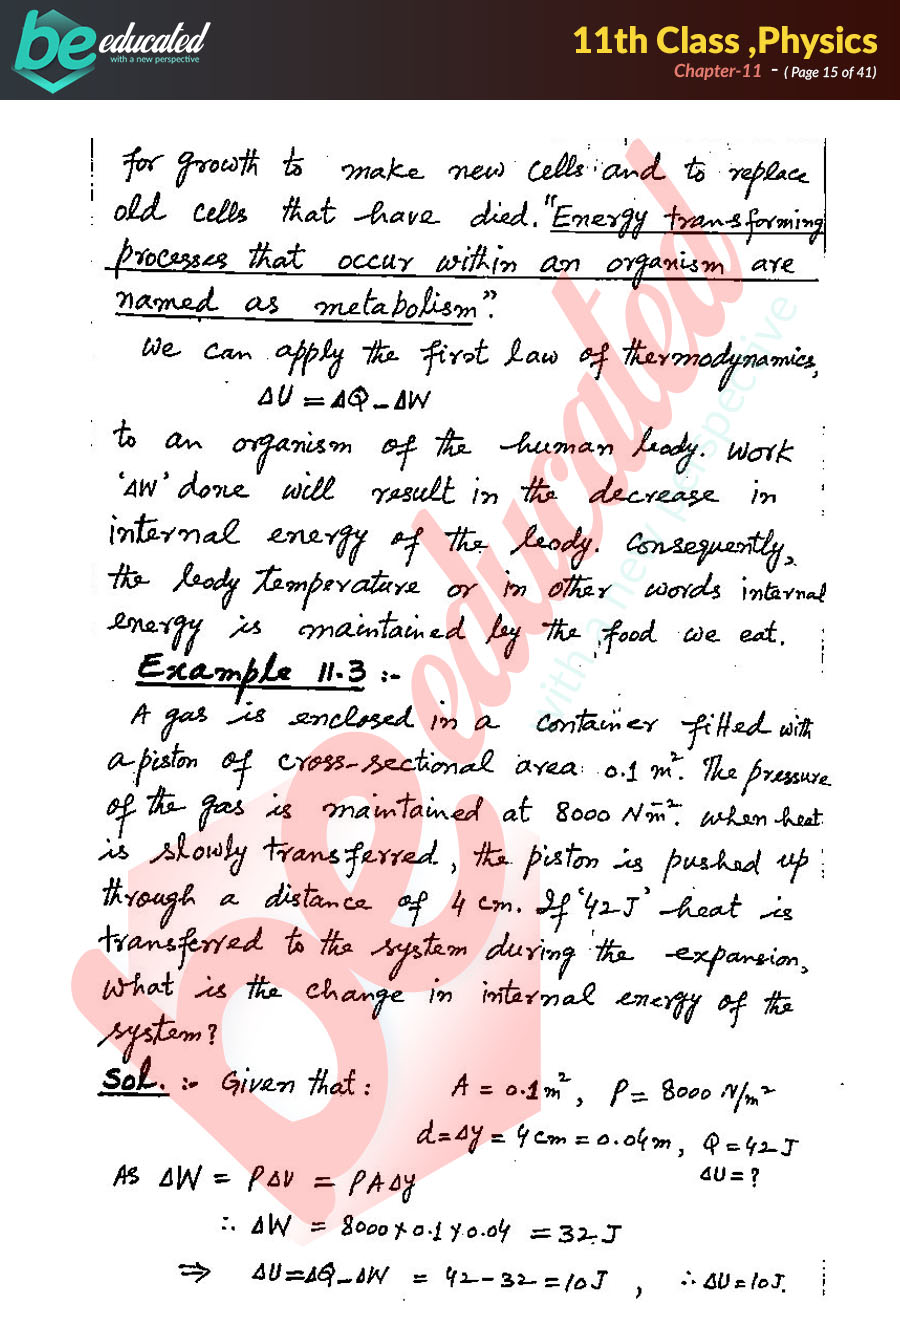 be educated
with a new perspective
11th Class ,Physics
Chapter-11 - ( Page 15 of 41)
for growth to make new cells and to replace
old cells that have died. "Energy transforming
processes that occur within an organism are
named as metabolism".
We can apply the first law of thermodynamics,
ΔU = ΔQ - ΔW
to an organism of the human body. Work
'ΔW' done will result in the decrease in
internal energy of the body. Consequently,
the body temperature or in other words internal
energy is maintained by the food we eat.
Example 11.3 :-
A gas is enclosed in a container fitted with
a piston of cross-sectional area 0.1 m². The pressure
of the gas is maintained at 8000 Nm⁻². When heat
is slowly transferred, the piston is pushed up
through a distance of 4 cm. If '42J' heat is
transferred to the system during the expansion,
What is the change in internal energy of the
system?
Sol. :- Given that : A = 0.1 m², P = 8000 N/m²
d = Δy = 4 cm = 0.04m, Q = 42J
ΔU = ?
As ΔW = PΔV = PAΔy
∴ ΔW = 8000 x 0.1 x 0.04 = 32J
⇒ ΔU = ΔQ - ΔW = 42 - 32 = 10J , ∴ ΔU = 10J.
be educated
with a new perspective